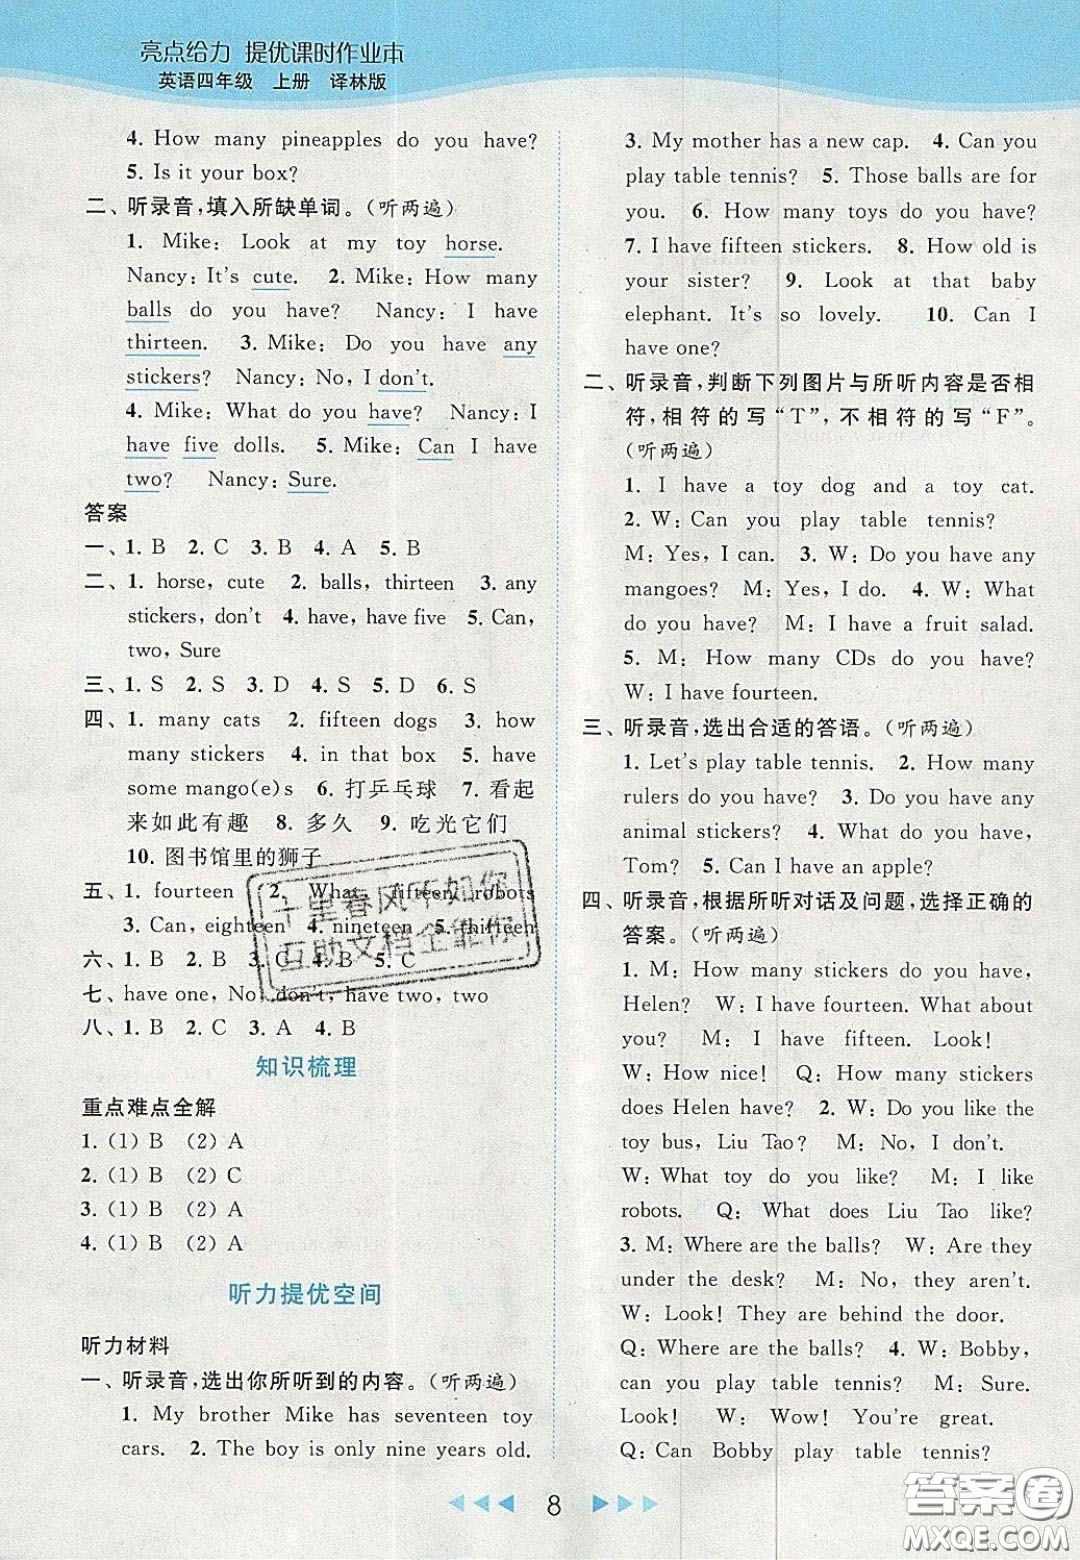 亮点给力 提优课时作业本
英语四年级 上册 译林版
4. How many pineapples do you have?
5. Is it your box?
二、听录音,填入所缺单词。(听两遍)
1. Mike: Look at my toy horse.
Nancy: It's cute. 2. Mike: How many
balls do you have? Nancy: I have
thirteen. 3. Mike: Do you have any
stickers? Nancy: No, I don't.
4. Mike: What do you have? Nancy: I
have five dolls. 5. Mike: Can I have
two? Nancy: Sure.
答案
一、1. B 2. C 3. B 4. A 5. B
二、1. horse, cute 2. balls, thirteen 3. any
stickers, don't 4. have, have five 5. Can,
two, Sure
三、1. S 2. S 3. D 4. S 5. D 6. S
四、1. many cats 2. fifteen dogs 3. how
many stickers 4. in that box 5. have
some mango(e)s 6. 打乒乓球 7. 看起
来如此有趣 8. 多久 9. 吃光它们
10. 图书馆里的狮子
五、1. fourteen 2. What, fifteen, robots
3. Can, eighteen 4. nineteen 5. thirteen
六、1. B 2. B 3. C 4. B 5. C
七、have one, No, don't, have two, two
八、1. B 2. C 3. A 4. B
知识梳理
重点难点全解
1. (1) B (2) A
2. (1) B (2) C
3. (1) B (2) A
4. (1) B (2) A
听力提优空间
听力材料
一、听录音,选出你所听到的内容。(听两遍)
1. My brother Mike has seventeen toy
cars. 2. The boy is only nine years old.
3. My mother has a new cap. 4. Can you
play table tennis? 5. Those balls are for
you. 6. How many toys do you have?
7. I have fifteen stickers. 8. How old is
your sister? 9. Look at that baby
elephant. It's so lovely. 10. Can I
have one?
二、听录音,判断下列图片与所听内容是否相
符,相符的写“T”,不相符的写“F”。
(听两遍)
1. I have a toy dog and a toy cat.
2. W: Can you play table tennis?
M: Yes, I can. 3. W: Do you have any
mangoes? M: Yes, I do. 4. W: What
do you have? M: I have a fruit salad.
5. M: How many CDs do you have?
W: I have fourteen.
三、听录音,选出合适的答语。(听两遍)
1. Let's play table tennis. 2. How many
rulers do you have? 3. Do you have any
animal stickers? 4. What do you have,
Tom? 5. Can I have an apple?
四、听录音,根据所听对话及问题,选择正确的
答案。(听两遍)
1. M: How many stickers do you have,
Helen? W: I have fourteen. What about
you? M: I have fifteen. Look!
W: How nice! Q: How many stickers
does Helen have? 2. W: Do you like the
toy bus, Liu Tao? M: No, I don't.
W: What toy do you like? M: I like
robots. Q: What does Liu Tao like?
3. M: Where are the balls? W: Are they
under the desk? M: No, they aren't.
W: Look! They are behind the door.
Q: Where are the balls? 4. W: Bobby,
can you play table tennis? M: Sure.
Look! W: Wow! You're great.
Q: Can Bobby play table tennis?
十里春风不如你
互助文档全靠你
8
答案圈
MXQE.COM